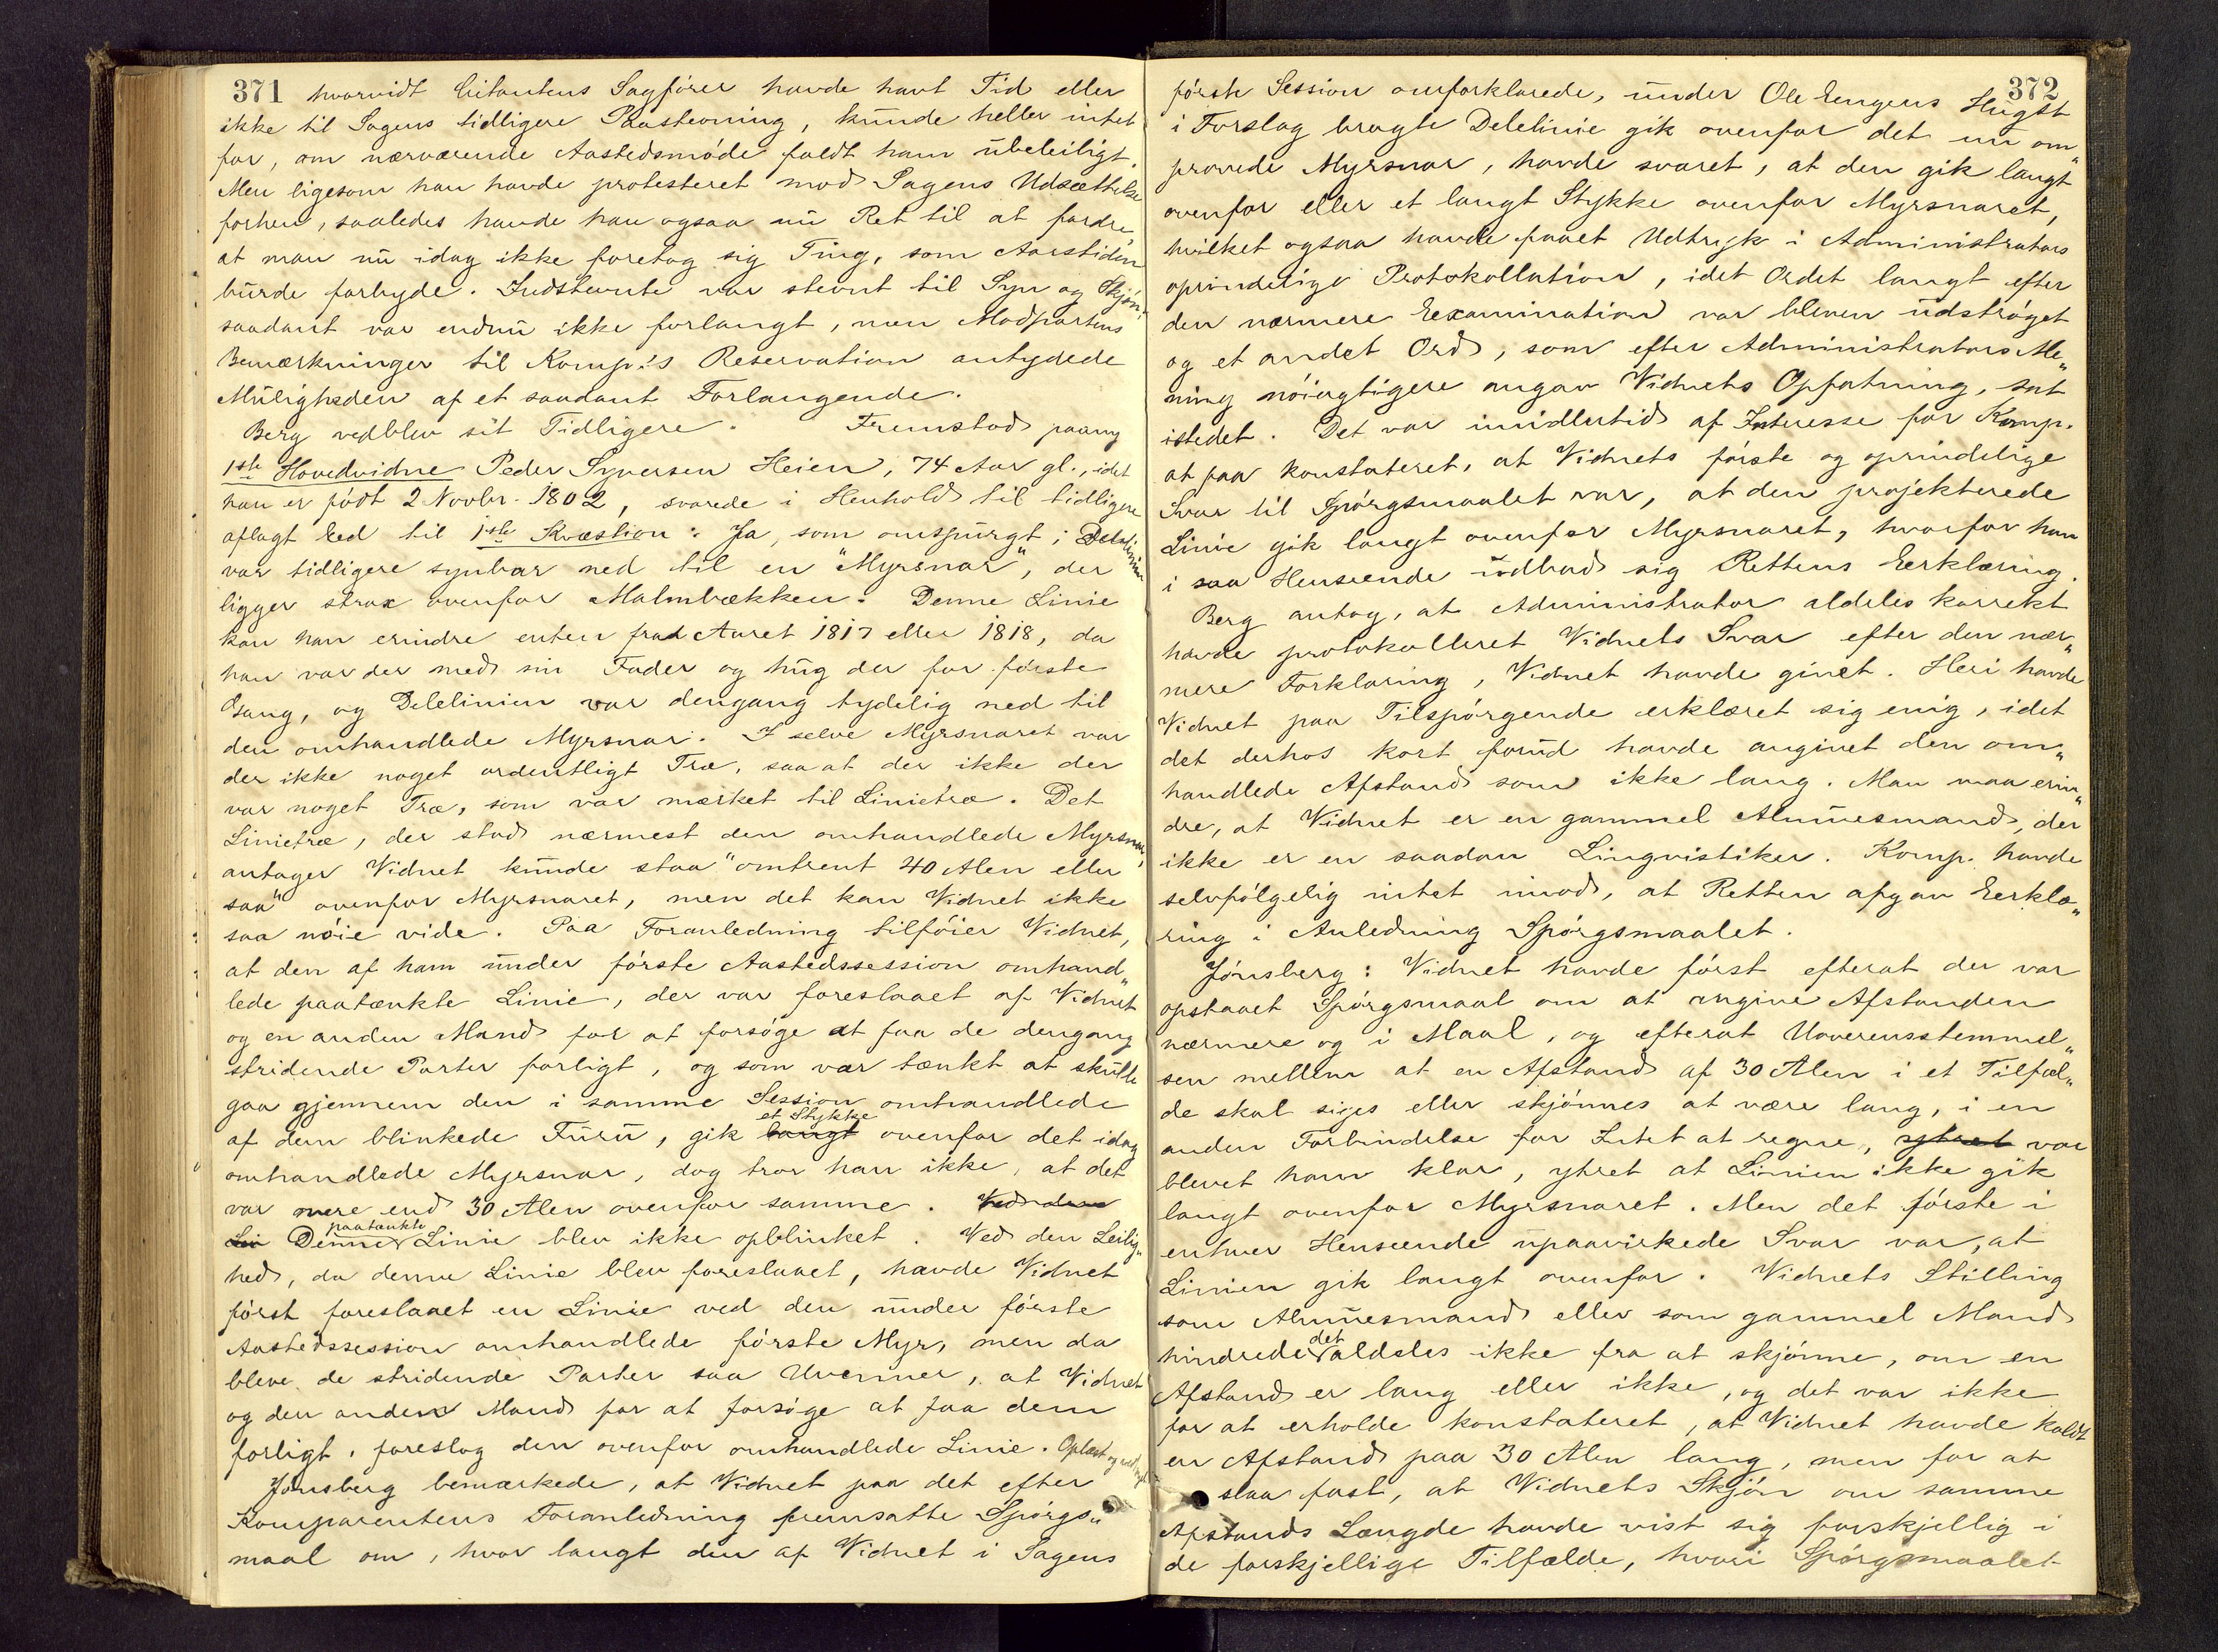 371 hvorvidt Citantens Sagfører havde havt Tid eller
ikke til Sagens tidligere Paastevning, kunde heller intet
for, om nærværende Aastedsmøde faldt ham ubeleiligt.
Men ligesom han havde protesteret mod Sagens Udsættelse
forhen, saaledes havde han ogsaa nu Ret til at fordre,
at man nu idag ikke foretog sig Ting, som Aarstiden
burde forbyde. Indstevnte var stevnt til Syn og Skjøn;
saadant var endnu ikke forlangt, men Modpartens
Bemærkninger til Komp:s Reservation antydede
Muligheden af et saadant Forlangende.
Berg vedblev sit Tidligere. Fremstod paany
1ste Hovedvidne Peder Syversen Heien, 74 Aar gl., idet
han er født 2 Novbr. 1802, svarede i Henhold til tidligere
aflagt Eed til 1ste Kvæstion: Ja, som omspurgt; Delelinien
var tidligere synbar ned til en "Myrsnar", der
ligger strax ovenfor Malmbækken. Denne Linie
kan han erindre enten fra Aaret 1817 eller 1818, da
han var der med sin Fader og hug der for første
Gang, og Delelinien var dengang tydelig ned til
den omhandlede Myrsnar. I selve Myrsnaret var
der ikke noget ordentligt Træ, saa at der ikke der
var noget Træ, som var mærket til Linietræ. Det
Linietræ, der stod nærmest den omhandlede Myrsnar,
antager Vidnet kunde staa "omtrent 40 Alen eller
saa" ovenfor Myrsnaret, men det kan Vidnet ikke
saa nøie vide. Paa Foranledning tilføier Vidnet,
at den af ham under første Aastedssession omhand„
lede paatænkte Linie, der var foreslaaet af Vidnet
og en anden Mand for at forsøge at faa de dengang
stridende Parter forligt, og som var tænkt at skulle
gaa gjennem den i samme Session omhandlede
et Stykke
af dem blinkede Furu, gik langt ovenfor det idag
omhandlede Myrsnar, dog tror han ikke, at det
var mere end 30 Alen ovenfor samme. Ved den
paatænkte
Lei Denne Linie blev ikke opblinket. Ved den Leilig„
hed, da denne Linie blev foreslaaet, havde Vidnet
først foreslaaet en Linie ved den under første
Aastedssession omhandlede første Myr, men da
bleve de stridende Parter saa Uvenner, at Vidnet
og den anden Mand for at forsøge at faa dem
forligt, foreslog den ovenfor omhandlede Linie. Oplæst og vedtaget
Jønsberg bemærkede, at Vidnet paa det efter
Komparentens Foranledning fremsatte Spørgs„
maal om, hvor langt den af Vidnet i Sagens
372
første Session omforklarede, under Ole Eengens Hugst
i Forslag bragte Delelinie gik ovenfor det nu om„
prøvede Myrsnar, havde svaret, at den gik langt
ovenfor eller et langt Stykke ovenfor Myrsnaret,
hvilket ogsaa havde faaet Udtryk i Administrators
oprindelige Protokollation, idet Ordet langt efter
den nærmere Examination var bleven udstrøget
og et andet Ord, som efter Administrators Me„
ning nøiagtigere angav Vidnets Opfatning, sat
istedet. Det var imidlertid af Interesse for Komp.
at faa konstateret, at Vidnets første og oprindelige
Svar til Spørgsmaalet var, at den projekterede
Linie gik langt ovenfor Myrsnaret, hvorfor han
i saa Henseende udbad sig Rettens Eerklæring.
Berg antog, at Administrator aldeles korrekt
havde protokolleret Vidnets Svar efter den nær„
mere Forklaring, Vidnet havde givet. Heri havde
Vidnet paa Tilspørgende erklæret sig enig, idet
det derhos kort forud havde angivet den om„
handlede Afstand som ikke lang. Man maa erin„
dre, at Vidnet er en gammel Almuesmand, der
ikke er en saadan Lingvistiker. Komp. havde
selvfølgelig intet imod, at Retten afgav Eerklæ„
ring i Anledning Spørgsmaalet.
Jønsberg: Vidnet havde først efterat der var
opstaaet Spørgsmaal om at angive Afstanden
nærmere og i Maal, og efterat Uoverensstemmel„
sen mellem at en Afstand af 30 Alen i et Tilfæl„
de skal siges eller skjønnes at være lang, i en
anden Forbindelse for Intet at regne, ytret var
blevet ham klar, ytret at Linien ikke gik
langt ovenfor Myrsnaret. Men det første i
enhver Henseende upaavirkede Svar var, at
Linien gik langt ovenfor. Vidnets Stilling
som Almuesmand eller som gammel Mand
det
hindrede aldeles ikke fra at skjønne, om en
Afstand er lang eller ikke, og det var ikke
for at erholde konstateret, at Vidnet havde kaldt
en Afstand paa 30 Alen lang, men for at
slaa fast, at Vidnets Skjøn om samme
Afstands Længde havde vist sig forskjellig i
de forskjellige Tilfælde, hvori Spørgsmaalet